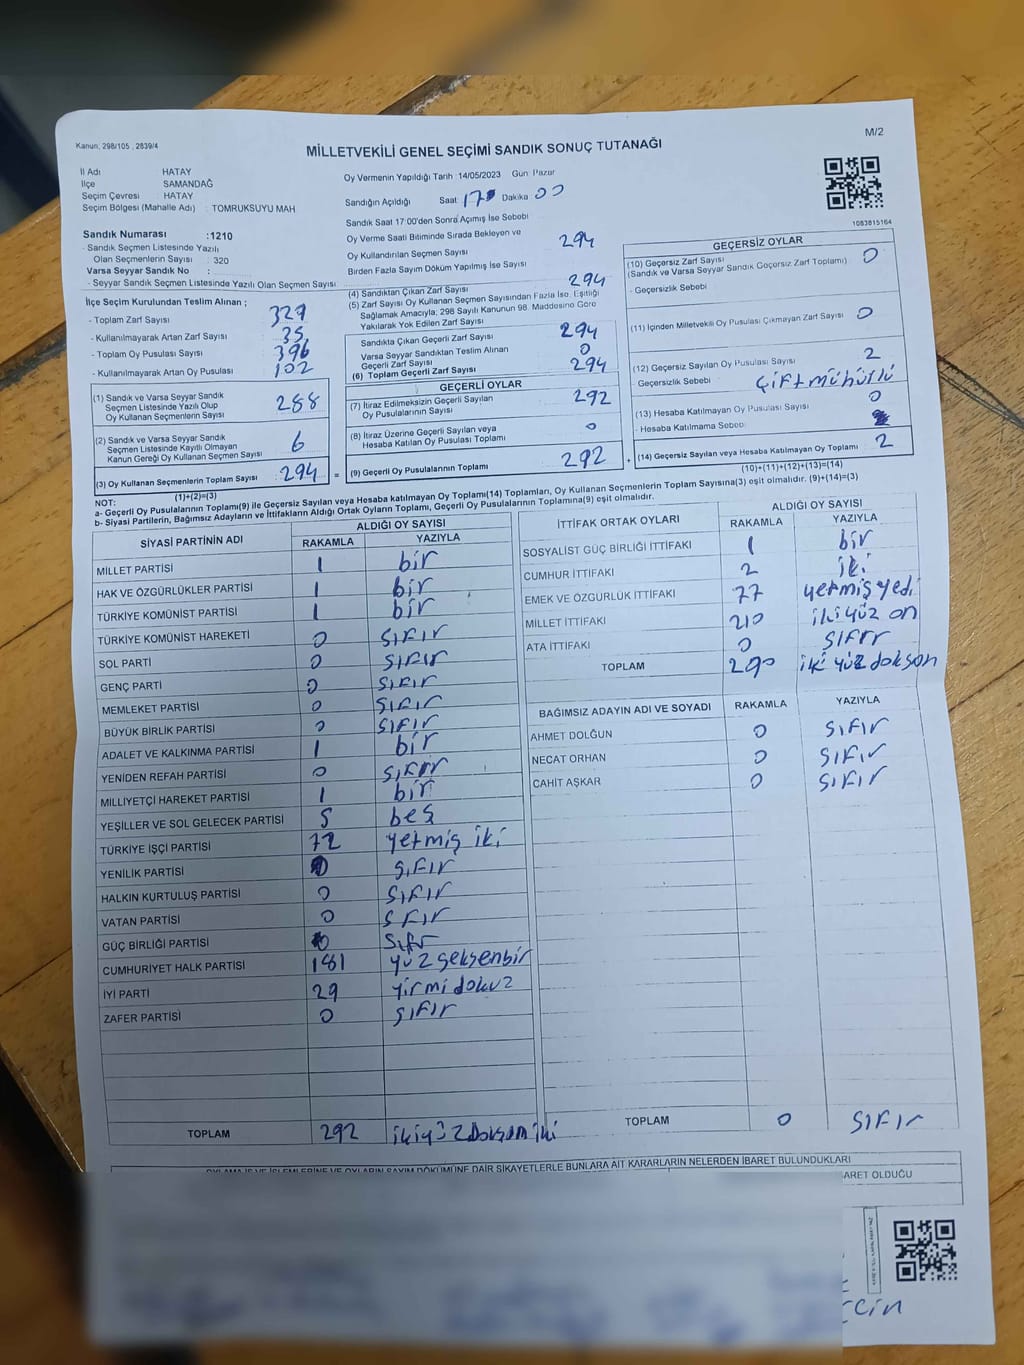 Kanun, 298/105 , 2839/4
M/2
MİLLETVEKİLİ GENEL SEÇİMİ SANDIK SONUÇ TUTANAĞI
İl Adı HATAY
İlçe SAMANDAĞ
Seçim Çevresi : HATAY
Seçim Bölgesi (Mahalle Adı) : TOMRUKSUYU MAH
Sandık Numarası :1210
- Sandık Seçmen Listesinde Yazılı
Olan Seçmenlerin Sayısı : 320
Varsa Seyyar Sandık No :
- Seyyar Sandık Seçmen Listesinde Yazılı Olan Seçmen Sayısı
Oy Vermenin Yapıldığı Tarih :14/05/2023 Gün: Pazar
Sandığın Açıldığı Saat: 17 Dakika 00
Sandık Saat 17:00'den Sonra Açımış İse Sebebi
Oy Verme Saati Bitiminde Sırada Bekleyen ve
Oy Kullandırılan Seçmen Sayısı 294
Birden Fazla Sayım Döküm Yapılmış İse Sayısı
1083815164
İlçe Seçim Kurulundan Teslim Alınan ;
- Toplam Zarf Sayısı 329
- Kullanılmayarak Artan Zarf Sayısı 35
- Toplam Oy Pusulası Sayısı 396
- Kullanılmayarak Artan Oy Pusulası 102
(1) Sandık ve Varsa Seyyar Sandık
Seçmen Listesinde Yazılı Olup
Oy Kullanan Seçmenlerin Sayısı 288
(2) Sandık ve Varsa Seyyar Sandık
Seçmen Listesinde Kayıtlı Olmayan
Kanun Gereği Oy Kullanan Seçmen Sayısı 6
(3) Oy Kullanan Seçmenlerin Toplam Sayısı 294 =
(1)+(2)=(3)
(4) Sandıktan Çıkan Zarf Sayısı 294
(5) Zarf Sayısı Oy Kullanan Seçmen Sayısından Fazla İse, Eşitliği
Sağlamak Amacıyla; 298 Sayılı Kanunun 98. Maddesine Göre
Yakılarak Yok Edilen Zarf Sayısı
Sandıkta Çıkan Geçerli Zarf Sayısı 294
Varsa Seyyar Sandıktan Teslim Alınan
Geçerli Zarf Sayısı 0
(6) Toplam Geçerli Zarf Sayısı 294
GEÇERLİ OYLAR
(7) İtiraz Edilmeksizin Geçerli Sayılan
Oy Pusulalarının Sayısı 292
(8) İtiraz Üzerine Geçerli Sayılan veya
Hesaba Katılan Oy Pusulası Toplamı 0
(9) Geçerli Oy Pusulalarının Toplamı 292 +
GEÇERSİZ OYLAR
(10) Geçersiz Zarf Sayısı
(Sandık ve Varsa Seyyar Sandık Geçersiz Zarf Toplamı) 0
- Geçersizlik Sebebi
(11) İçinden Milletvekili Oy Pusulası Çıkmayan Zarf Sayısı 0
(12) Geçersiz Sayılan Oy Pusulası Sayısı 2
Geçersizlik Sebebi çift mühürlü
(13) Hesaba Katılmayan Oy Pusulası Sayısı 0
- Hesaba Katılmama Sebebi
(14) Geçersiz Sayılan veya Hesaba Katılmayan Oy Toplamı 2
(10)+(11)+(12)+(13)=(14)
NOT:
a- Geçerli Oy Pusulalarının Toplamı(9) ile Geçersiz Sayılan veya Hesaba katılmayan Oy Toplamı(14) Toplamları, Oy Kullanan Seçmenlerin Toplam Sayısına(3) eşit olmalıdır. (9)+(14)=(3)
b- Siyasi Partilerin, Bağımsız Adayların ve İttifakların Aldığı Ortak Oyların Toplamı, Geçerli Oy Pusulalarının Toplamına(9) eşit olmalıdır.
SİYASİ PARTİNİN ADI ALDIĞI OY SAYISI
RAKAMLA YAZIYLA
MİLLET PARTİSİ 1 bir
HAK VE ÖZGÜRLÜKLER PARTİSİ 1 bir
TÜRKİYE KOMÜNİST PARTİSİ 1 bir
TÜRKİYE KOMÜNİST HAREKETİ 0 sıfır
SOL PARTİ 0 sıfır
GENÇ PARTİ 0 sıfır
MEMLEKET PARTİSİ 0 sıfır
BÜYÜK BİRLİK PARTİSİ 0 sıfır
ADALET VE KALKINMA PARTİSİ 1 bir
YENİDEN REFAH PARTİSİ 0 sıfır
MİLLİYETÇİ HAREKET PARTİSİ 1 bir
YEŞİLLER VE SOL GELECEK PARTİSİ 5 beş
TÜRKİYE İŞÇİ PARTİSİ 72 yetmiş iki
YENİLİK PARTİSİ 0 sıfır
HALKIN KURTULUŞ PARTİSİ 0 sıfır
VATAN PARTİSİ 0 sfır
GÜÇ BİRLİĞİ PARTİSİ 0 sıfr
CUMHURİYET HALK PARTİSİ 181 yüz seksenbir
İYİ PARTİ 29 yirmi dokuz
ZAFER PARTİSİ 0 sıfır
TOPLAM 292 ikiyüz Doksan iki
İTTİFAK ORTAK OYLARI ALDIĞI OY SAYISI
RAKAMLA YAZIYLA
SOSYALİST GÜÇ BİRLİĞİ İTTİFAKI 1 bir
CUMHUR İTTİFAKI 2 iki
EMEK VE ÖZGÜRLÜK İTTİFAKI 77 yetmiş yedi
MİLLET İTTİFAKI 210 iki yüz on
ATA İTTİFAKI 0 sıfır
TOPLAM 290 iki yüz doksan
BAĞIMSIZ ADAYIN ADI VE SOYADI RAKAMLA YAZIYLA
AHMET DOLĞUN 0 sıfır
NECAT ORHAN 0 sıfır
CAHİT AŞKAR 0 sıfır
TOPLAM 0 sıfır
OYLAMA İŞ VE İŞLEMLERİNE VE OYLARIN SAYIM DÖKÜMÜNE DAİR ŞİKAYETLERLE BUNLARA AİT KARARLARIN NELERDEN İBARET BULUNDUKLARI
ARET OLDUĞU